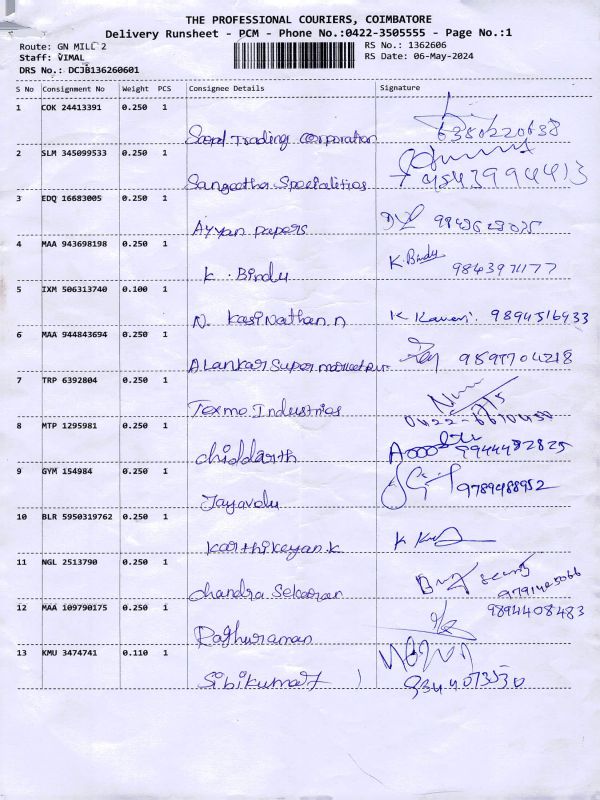 THE PROFESSIONAL COURIERS, COIMBATORE
Delivery Runsheet - PCM - Phone No.:0422-3505555 - Page No.:1
Route: GN MILL 2
Staff: VIMAL
DRS No.: DCJB136260601
RS No.: 1362606
RS Date: 06-May-2024
S No Consignment No Weight PCS Consignee Details Signature
1 COK 24413391 0.250 1
Trading Corporation 6380220638
2 SLM 345099533 0.250 1
Sangeetha Specialities 9543994413
3 EDQ 16683005 0.250 1
Ayyan papers
4 MAA 943698198 0.250 1
K. Bindu K. Bindu 9843971177
5 IXM 506313740 0.100 1
N. Kasi Nathan.n K Kaveri. 9894516933
6 MAA 944843694 0.250 1
Alankar Super market
7 TRP 6392804 0.250 1
Texmo Industries
8 MTP 1295981 0.250 1
chiddarth 9944482825
9 GYM 154984 0.250 1
Jayavelu 9789488952
10 BLR 5950319762 0.250 1
Karthikeyan.k
11 NGL 2513790 0.250 1
chandra Sekaran
12 MAA 109790175 0.250 1
Raghuraman 9894408483
13 KMU 3474741 0.110 1
Sibikumar